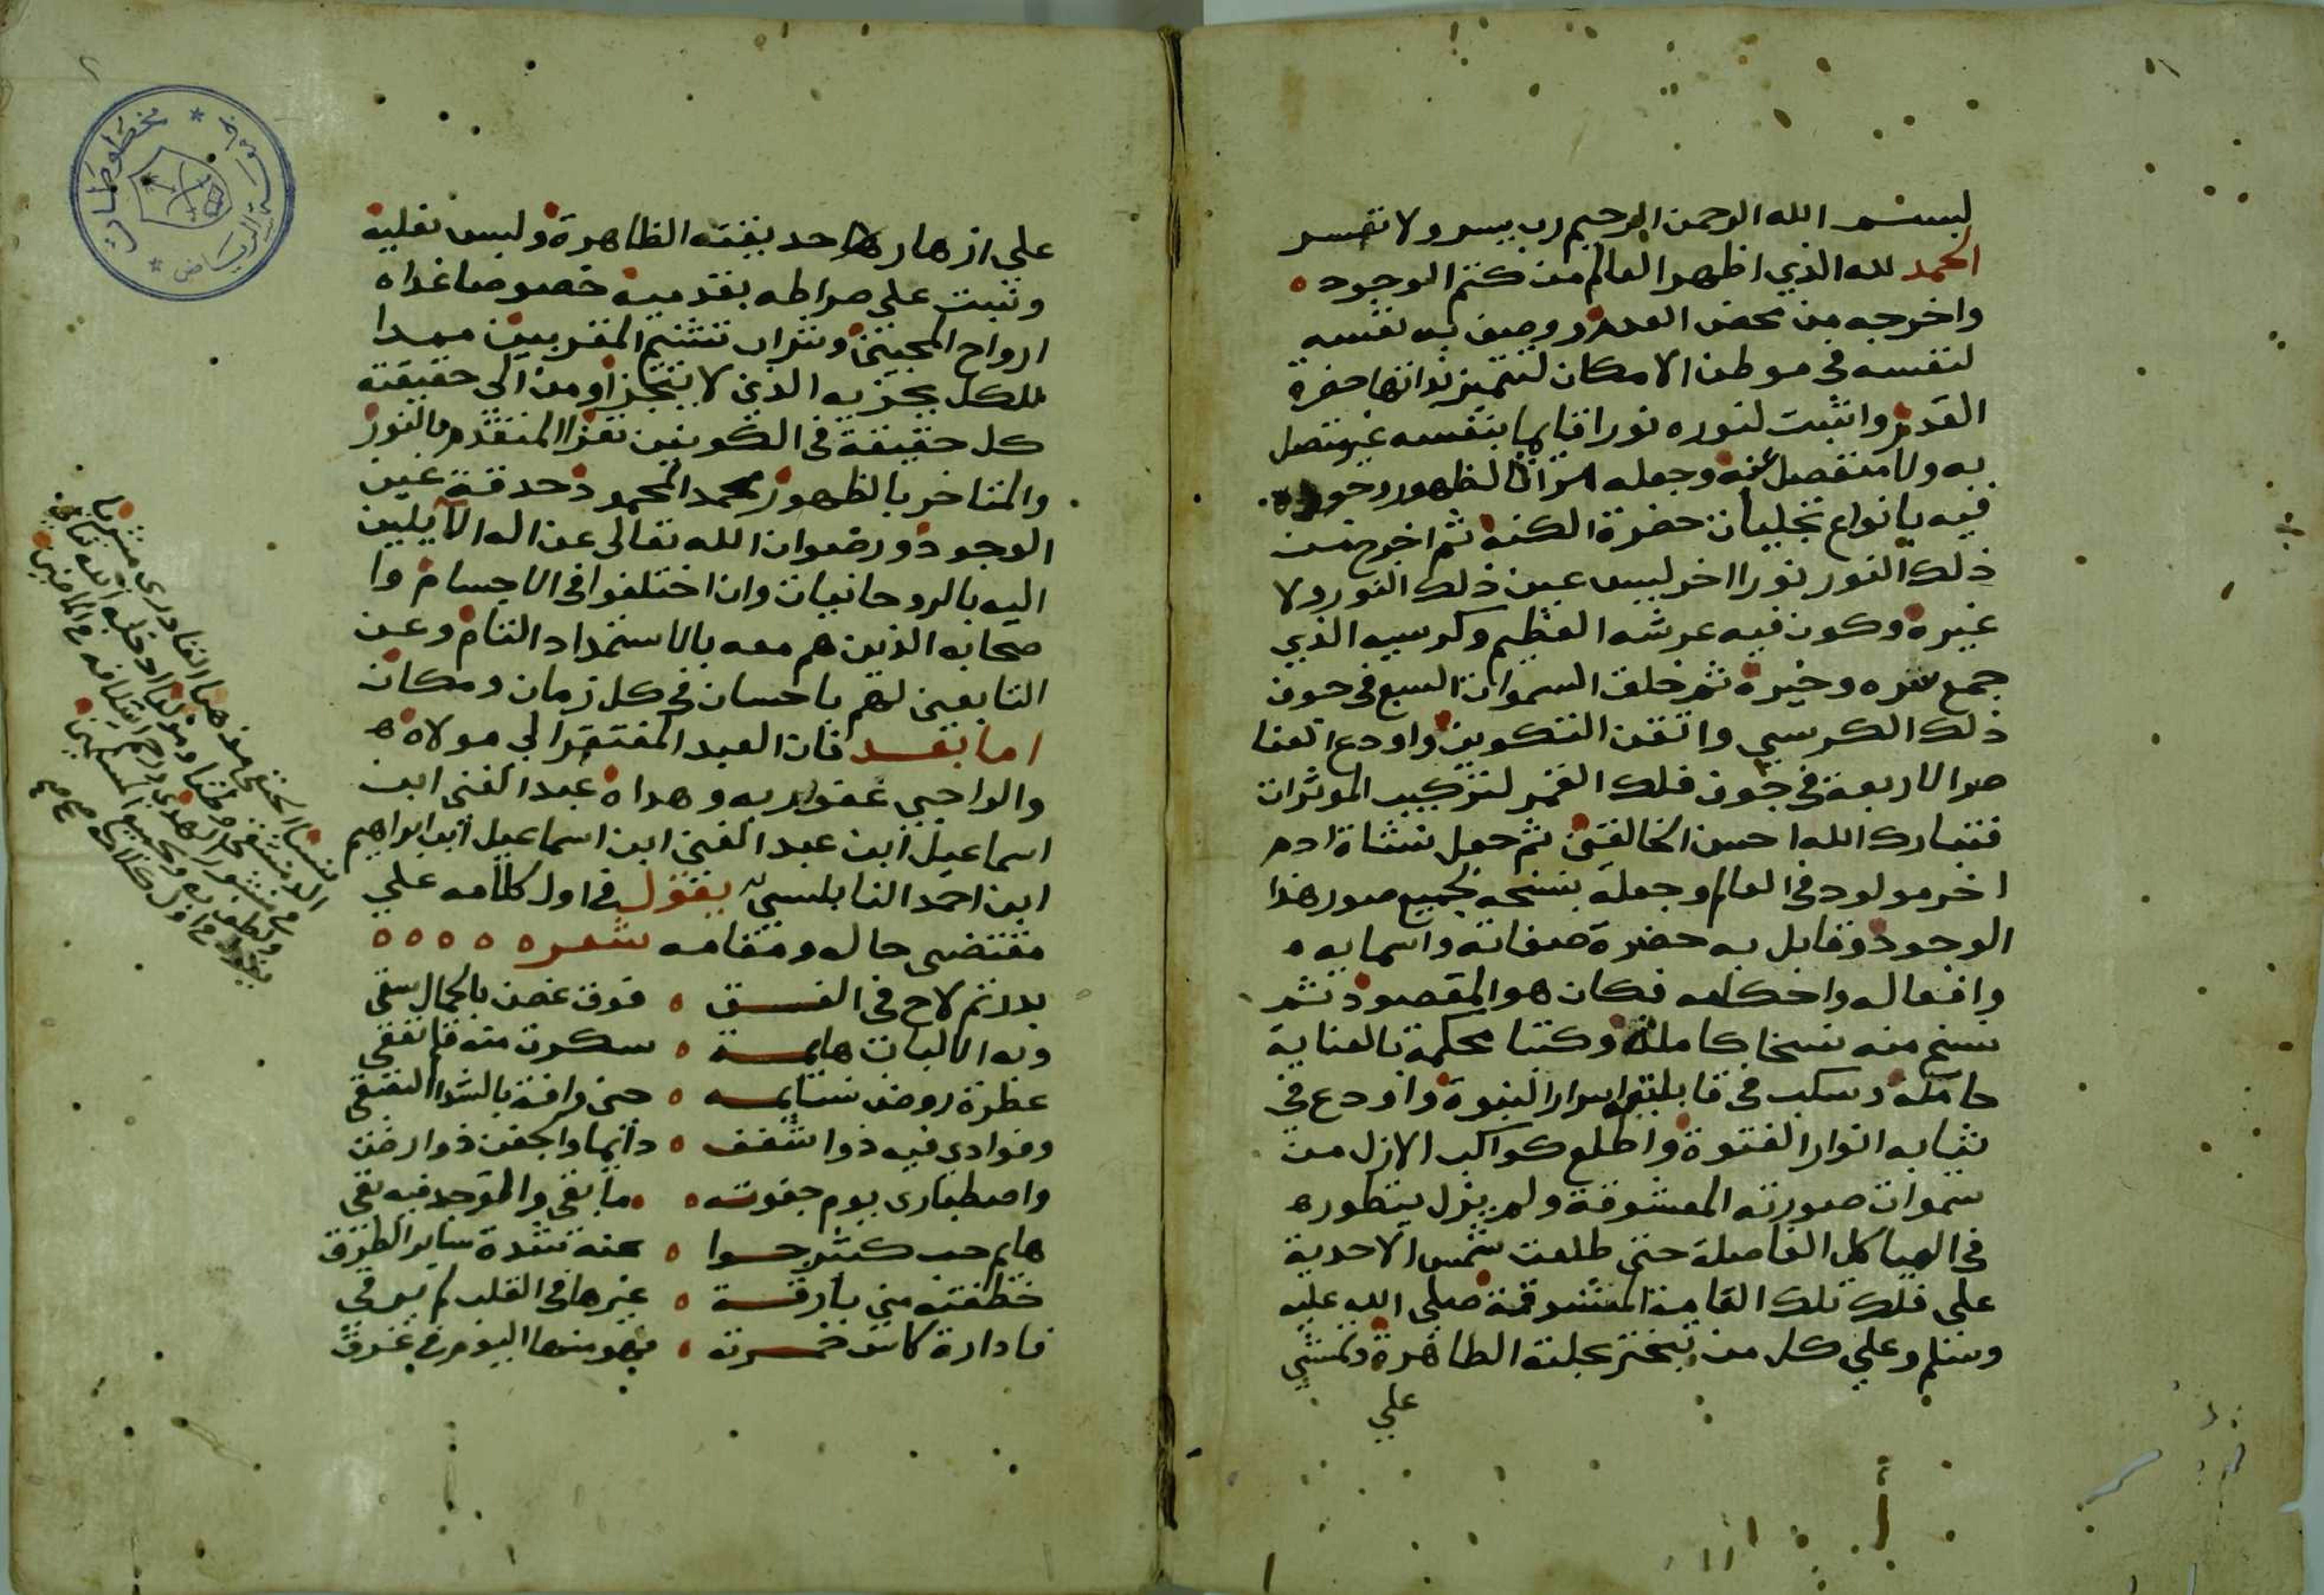 بسم الله الرحمن الرحيم رب يسر ولا تعسر
الحمد لله الذي اظهر العالم من كتم الوجود
واخرجه من محض العدم ووصف به نفسه
لنفسه في موطن الامكان لتتميز بذاتها حضرة
القدم واثبت لنوره نورا قايما بنفسه غير متصل
به ولا منفصل عنه وجعله مرآة لظهور وجوده
فيه بانواع تجليات حضرة الكنه ثم اخرج من
ذلك النور نورا اخر ليس عين ذلك النور ولا
غيره وكون فيه عرشه العظيم وكرسيه الذي
جمع شره وخيره ثم خلق السموات السبع في جوف
ذلك الكرسي واتقن التكوين واودع العنا
صر الاربعة في جوف فلك القمر لتركيب الموثرات
فتبارك الله احسن الخالقين ثم جعل نشاة ادم
اخر مولود في العالم وجعله نسخه لجميع صور هذا
الوجود وقابل به حضرة صفاته واسمايه
وافعاله واحكامه فكان هو المقصود ثم
نسخ منه نسخا كاملة وكتبا محكمة بالعناية
حاملة وسكب في قابليتها اسرار النبوة واودع في
ثيابه انوار الفتوة واطلع كواكب الازل من
سموات صورته المعشوقة ولم يزل يتطوره
في الهياكل الفاصلة حتى طلعت شمس الاحدية
على فلك تلك القامة الممشوقة صلى الله عليه
وسلم وعلى كل من تبختر بحلته الطاهرة ومشى
على
على ازهار حديقته الظاهرة ولبس نعليه
وثبت على صراطه بقدميه خصوصا غداه
ارواح المحبين وشراب تسنيم المقربين ممدا
للكل بجزيه الذي لا يتجزا ومن الى حقيقته
كل حقيقة في الكونين تعزا المتقدم بالنور
والمتاخر بالظهور محمد المحمود حدقة عين
الوجود ورضوان الله تعالى عن اله الآيلين
اليه بالروحانيات وان اختلفوا في الاجسام وا
صحابه الذين هم معه بالاستمداد التام وعن
التابعين لهم باحسان في كل زمان ومكان
اما بعد فان العبد المفتقر الى مولاه
والراجي عفو ربه وهداه عبد الغني ابن
اسماعيل ابن عبد الغني ابن اسماعيل ابن ابراهيم
ابن احمد النابلسي يقول في اول كلامه على
مقتضى حاله ومقامه شعره
بدر تم لاح في الغسق فوق غصن بالجمال سقي
وبه الالباب هايمة سكرت منه فلم تفق
عطرة روض نسايمه حين وافته بالشذا العبق
وفوادي فيه ذوا شغف دائما والجفن ذوا رق
واصطباري يوم جفوته ما بقى والوجد فيه بقي
هايم حب كثير جوا عنه شدة ساير الطرق
خطفته مني بارقة غيرها في القلب لم يبرق
فادارة كاس خمرته فهو منها اليوم في غرق
الحنفي مذهبا القادري مشربا
الدمشقي
مخطوطات
الرياض